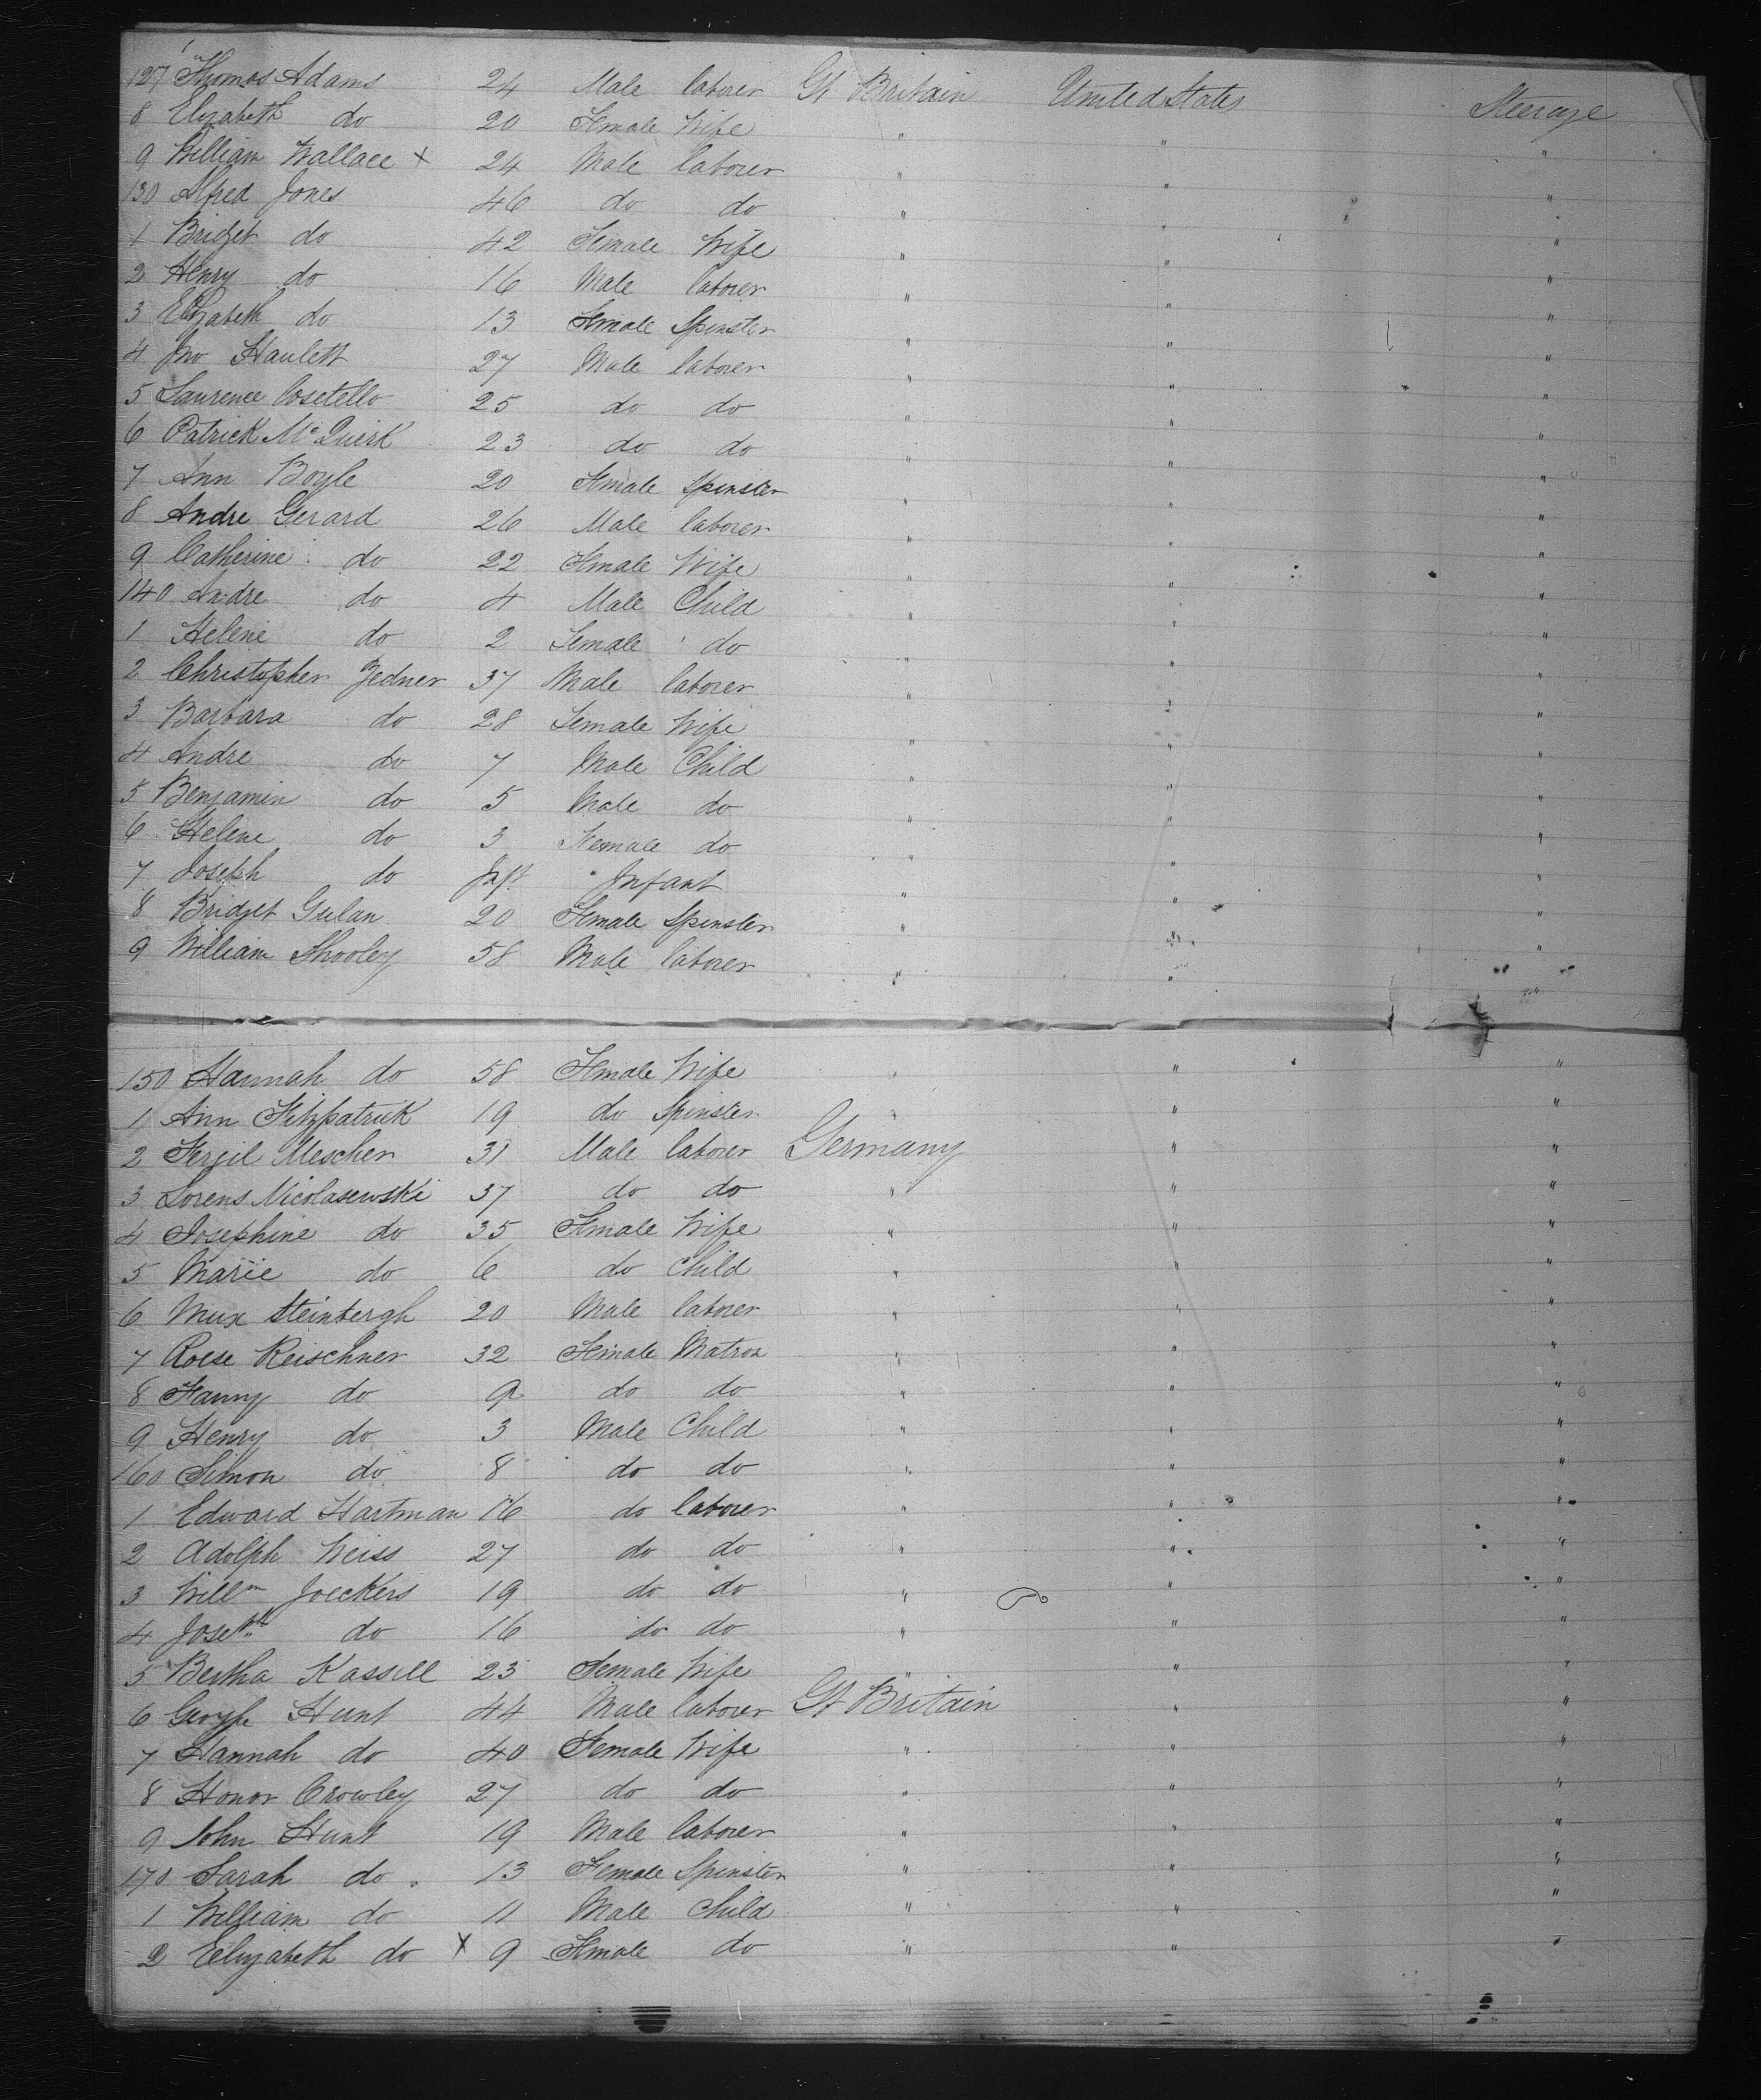 127 Thomas Adams 24 Male laborer Gt Britain United States Steerage
8 Elizabeth do 20 Female Wife " " "
9 William Wallace x 24 Male laborer " " "
130 Alfred Jones 46 do do " " "
1 Bridget do 42 Female Wife " " "
2 Henry do 16 Male laborer " " "
3 Elizabeth do 13 Female Spinster " " "
4 Jno Haulett 27 Male laborer " " "
5 Laurence Cosetello 25 do do " " "
6 Patrick McQuirk 23 do do " " "
7 Ann Boyle 20 Female Spinster " " "
8 Andre Gerard 26 Male laborer " " "
9 Catherine do 22 Female Wife " " "
140 Andre do 4 Male Child " " "
1 Helene do 2 Female do " " "
2 Christopher Zedner 37 Male laborer " " "
3 Barbara do 28 Female Wife " " "
4 Andre do 7 Male Child " " "
5 Benjamin do 5 Male do " " "
6 Helene do 3 Female do " " "
7 Joseph do Inft Infant " " "
8 Bridget 20 Female Spinster " " "
9 William Shooley 58 Male laborer " " "
150 Hannah do 58 Female Wife " " "
1 Ann Fitzpatrick 19 do Spinster " " "
2 Mescher 31 Male laborer Germany " "
3 Lorens Nicolasewski 37 do do " " "
4 Josephine do 35 Female Wife " " "
5 Marie do 6 do Child " " "
6 Max Steinbergh 20 Male laborer " " "
7 Roese Reischner 32 Female Matron " " "
8 Fanny do 9 do do " " "
9 Henry do 3 Male Child " " "
160 Simon do 8 do do " " "
1 Edward Hartman 16 do laborer " " "
2 Adolph Weiss 27 do do " " "
3 Willm Joeckers 19 do do " " "
4 Joseph do 16 do do " " "
5 Bertha Kassell 23 Female Wife " " "
6 George Hunt 44 Male laborer Gt Britain " "
7 Hannah do 40 Female Wife " " "
8 Honor Crowley 27 do do " " "
9 John Hunt 19 Male laborer " " "
170 Sarah do 13 Female Spinster " " "
1 William do 11 Male Child " " "
2 Elizabeth do x 9 Female do " " "